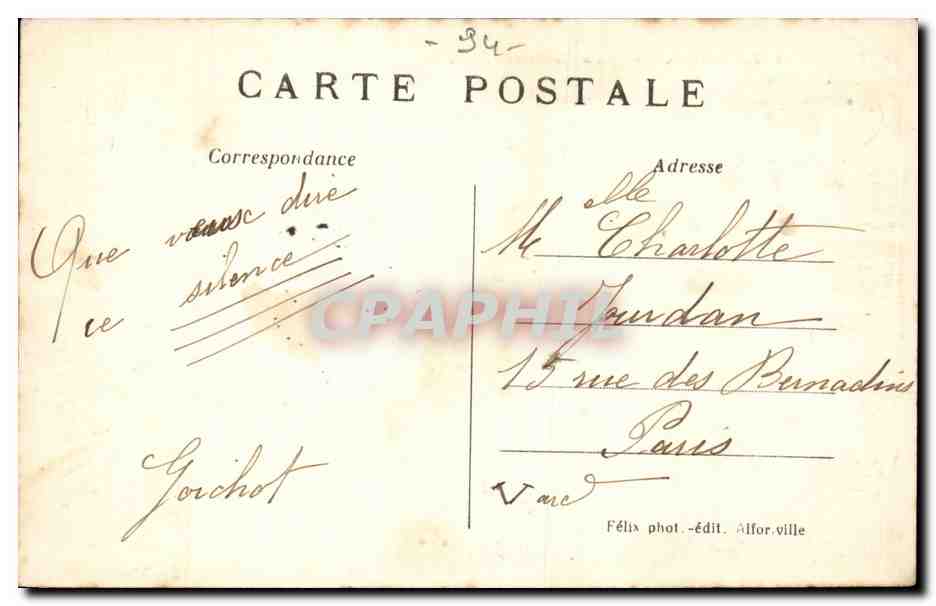 - 94 -
CARTE POSTALE
Correspondance
Que veux dire
ce silence
Goichot
Adresse
Melle Charlotte
Jourdan
15 rue des Bernadins
Paris
Félix phot.-édit. Alfor.ville
CPAPHIL